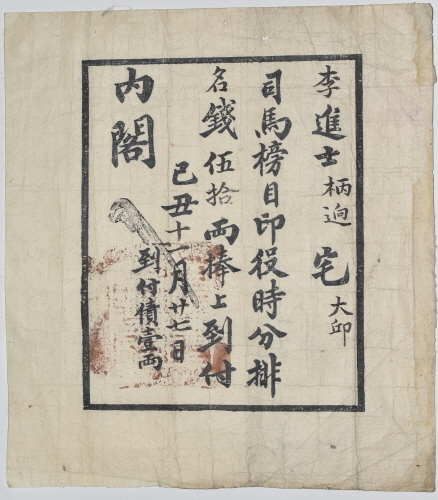 李進士柄逈宅 大邱
司馬榜目印役時分排
名錢伍拾兩捧上到付
己丑十一月廿七日
到付債壹兩
內閣